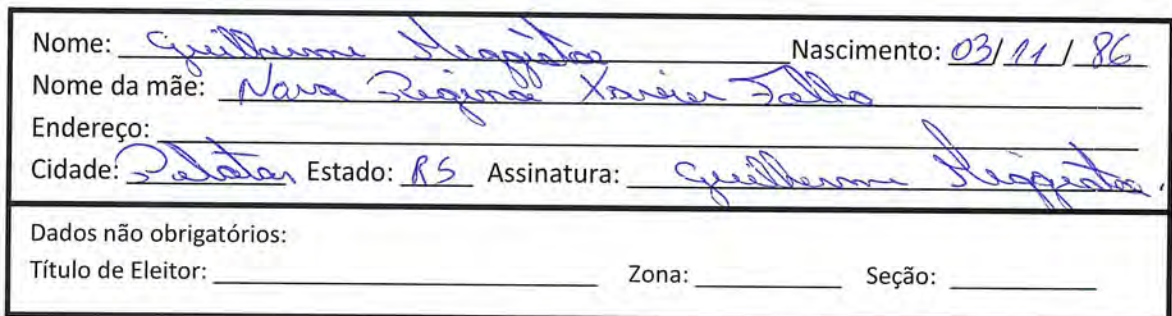 Nome: Guilherme Nascimento: 03/11/86
Nome da mãe: Nara Regina Xavier
Endereço:
Cidade: Pelotas Estado: RS Assinatura: Guilherme
Dados não obrigatórios:
Título de Eleitor: Zona: Seção: